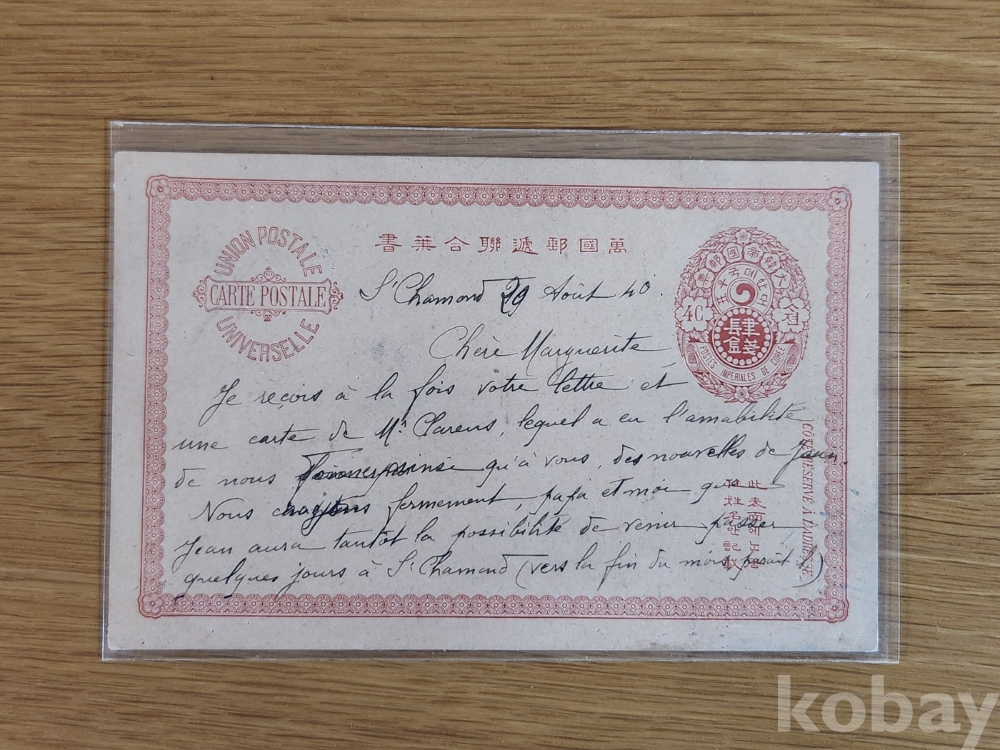 萬國郵遞聯合葉書
UNION POSTALE
CARTE POSTALE
UNIVERSELLE
大韓帝國郵票
대한국우
4C
전
肆錢
POSTES IMPERIALES DE COREE
St Chamond 29 Août 40.
Chère Marguerite
Je reçois à la fois votre lettre et
une carte de Mr. Clarens, lequel a eu l'amabilité
de nous ainsi qu'à vous, des nouvelles de Jean.
Nous croyons fermement, papa et moi que
Jean aura tantôt la possibilité de venir passer
quelques jours à St Chamond (vers la fin du mois parait il)
CÔTÉ RÉSERVÉ À L'ADRESSE
kobay